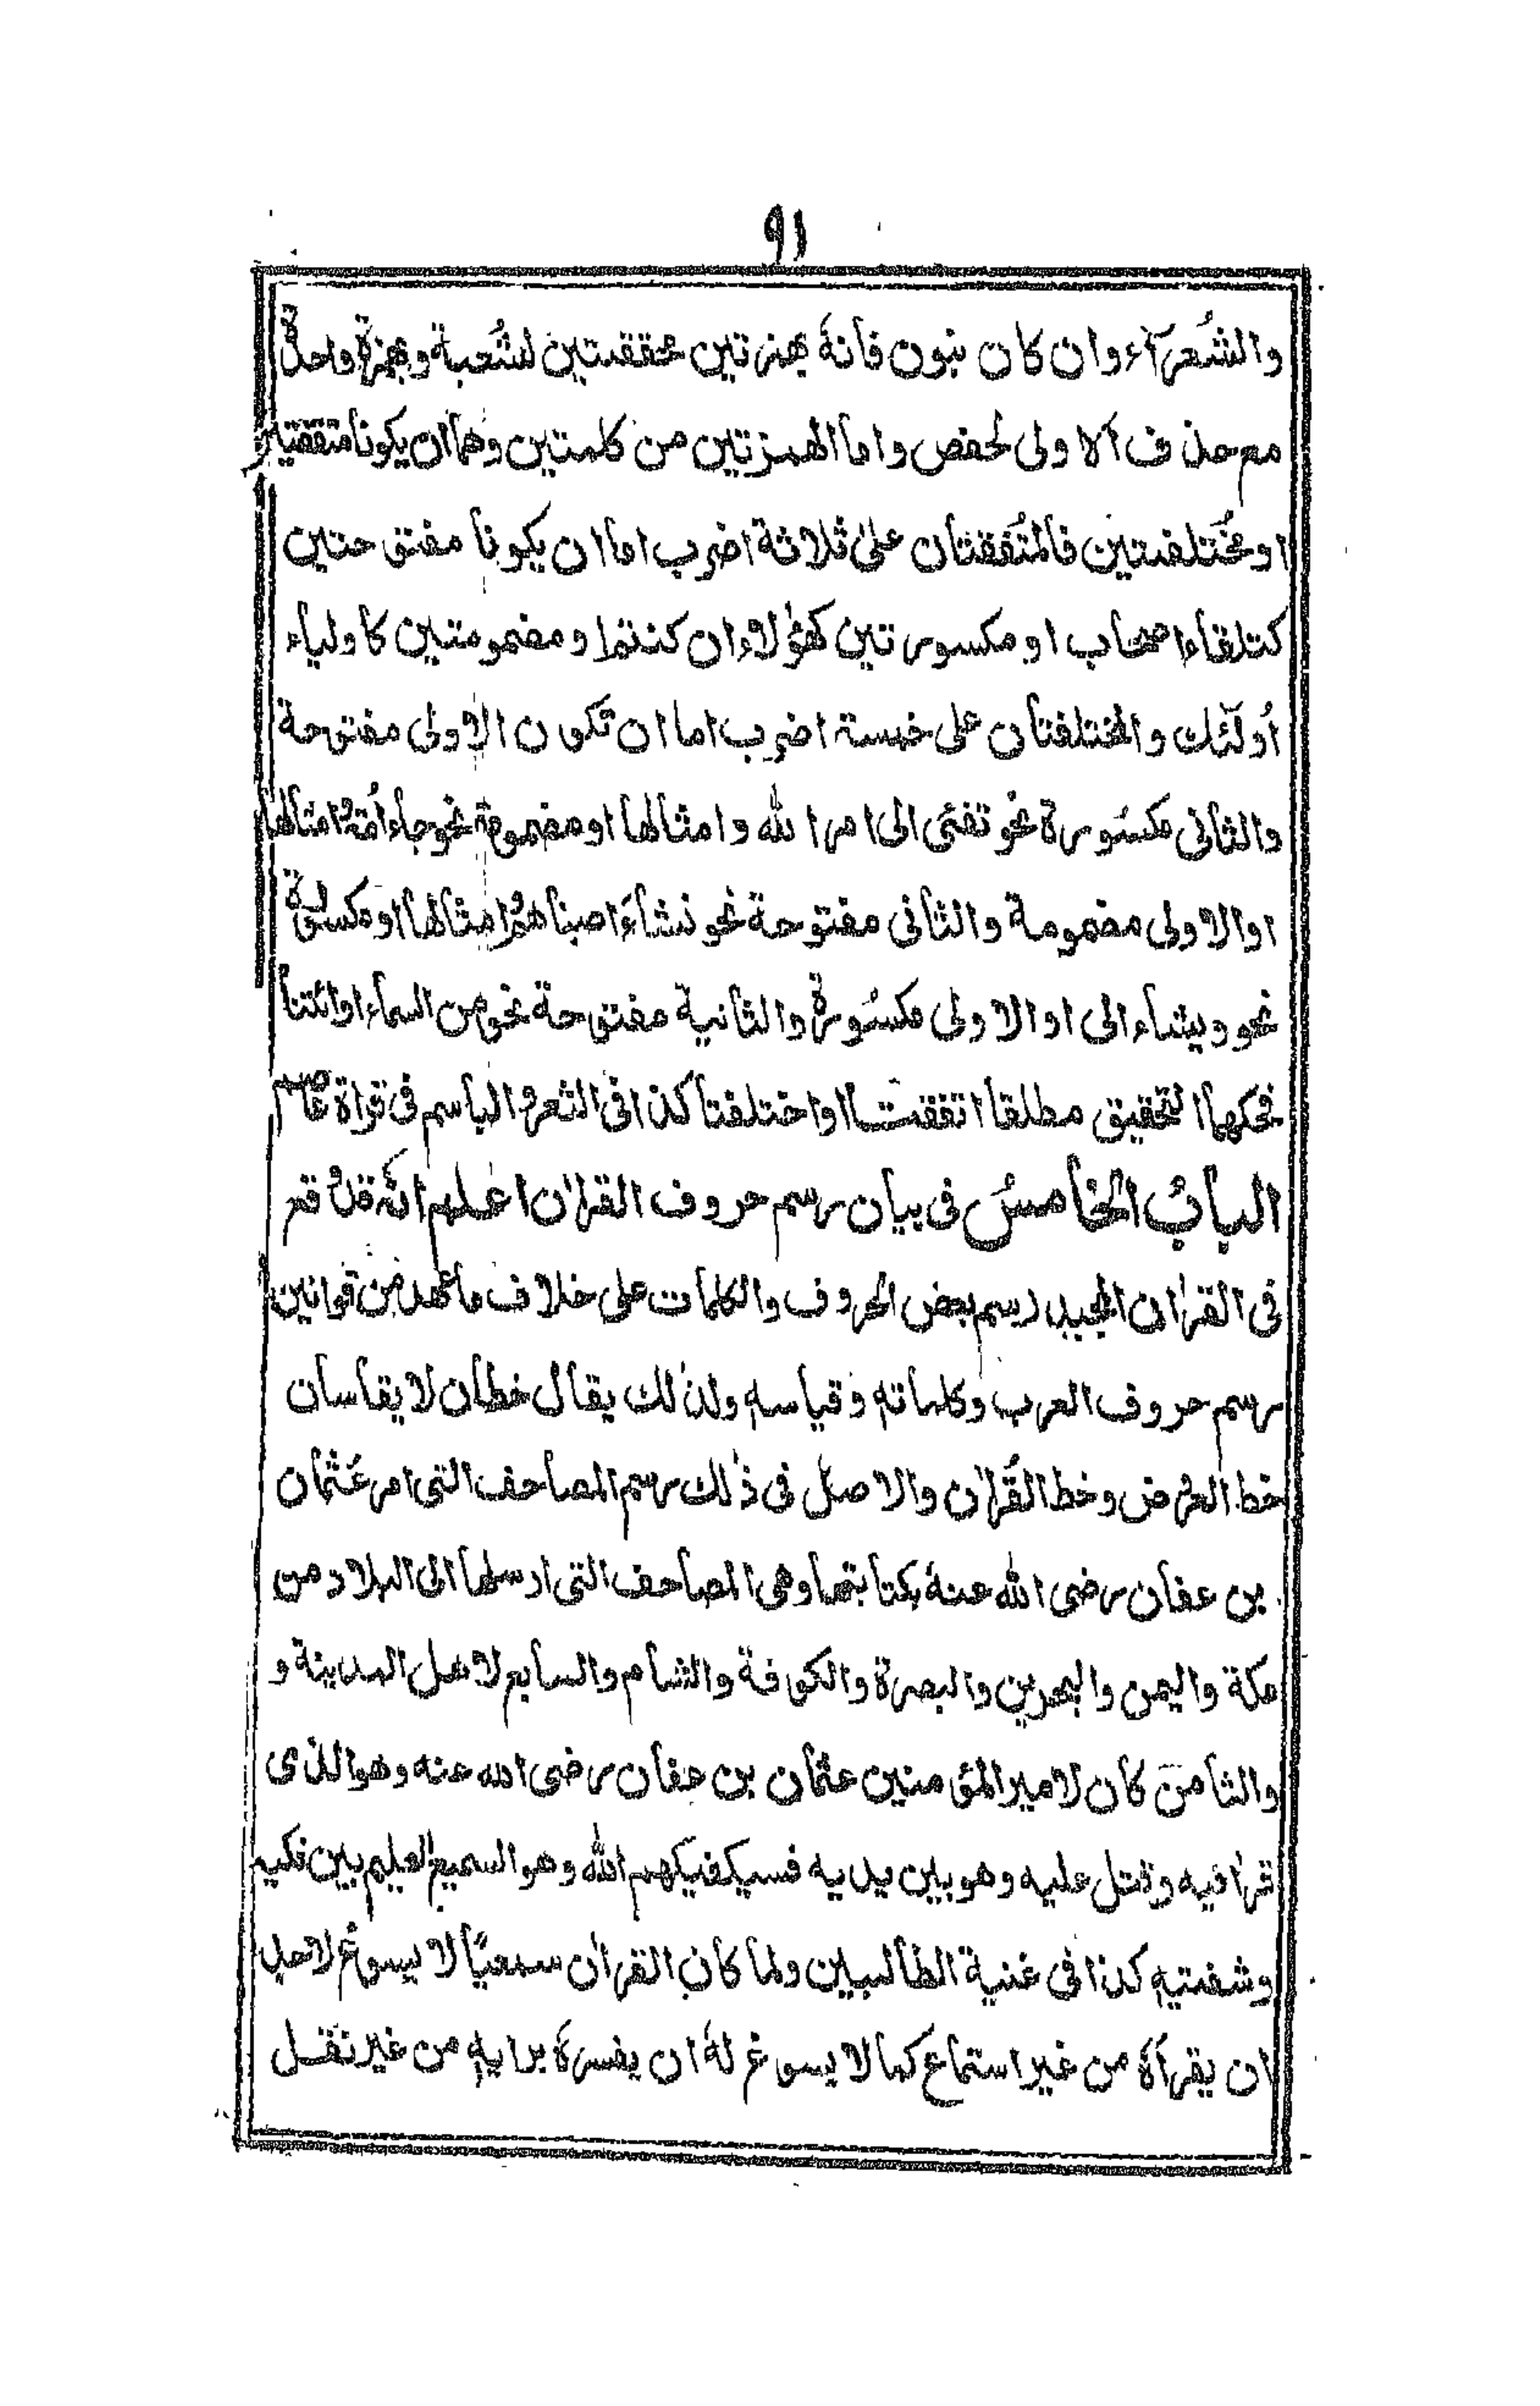 ٩١
والشُعرآء وان كان بنون فانهٗ بهمزتين محققتين لشُعبة وبهمزة واحدةٌ
مع حذف الاولى لحفص واما الهمزتين من كلمتين وهما ان يكونا متفقتين
او مختلفتين فالمتفقتان علىٰ ثلاثة اضرب اما ان يكونا مفتوحتين
كتلقاءاصحاب او مكسورتين كهؤلاءان كنتم او مضمومتين كاولياء
أولٓئك والمختلفتان على خمسة اضرب اما ان تكون الاولى مفتوحة
والثانى مكسُورة نحو تفئى الى امر الله وامثالها او مضمومة نحو جاء اُمةً امثالها
اوالاولى مضمومة والثانى مفتوحة نحو نشآءَ اصبناهمُ امثالها او مكسورة
نحو ويشاء الى اوالاولى مكسُورة والثانية مفتوحة نحو من السماء اوائتنا
فحكمها التحقيق مطلقا اتفقتا او اختلفتا كذا فى الثعر الباسم فى قراة عاصم
البابُ الخامسُ فى بيان رسم حروف القراٰن اعلم انهٗ قدْ قد
فى القراٰن المجيد رسم بعض الحروف والكلمات على خلاف ما عهد من قوانين
رسم حروف العرب وكلماته وقياسه ولذٰلك يقال خطان لا يقاسان
خط العرْوض وخط القُراٰن والاصلُ فى ذٰلك رسم المصاحف التى امر عُثمان
بن عفان رضى الله عنهٗ بكتابتها وهى المصاحف التى ارسلها الى البلاد من
مكة واليمن والبحرين والبصرة والكوفة والشام والسابع لاهل المدينة و
والثامن كان لامير المؤمنين عثمان بن عفان رضى الله عنه وهو الذى
قرأ فيه وقتل عليه وهو بين يديه فسيكفيكهم الله وهو السميع العليم بين فكيه
وشفتيه كذا فى غنية الطالبين ولما كان القراٰن سمعيًا لا يسوغ لاحد
ان يقرأهٗ من غير استماع كما لا يسوغ لهٗ ان يفسرهٗ برايه من غير نقل